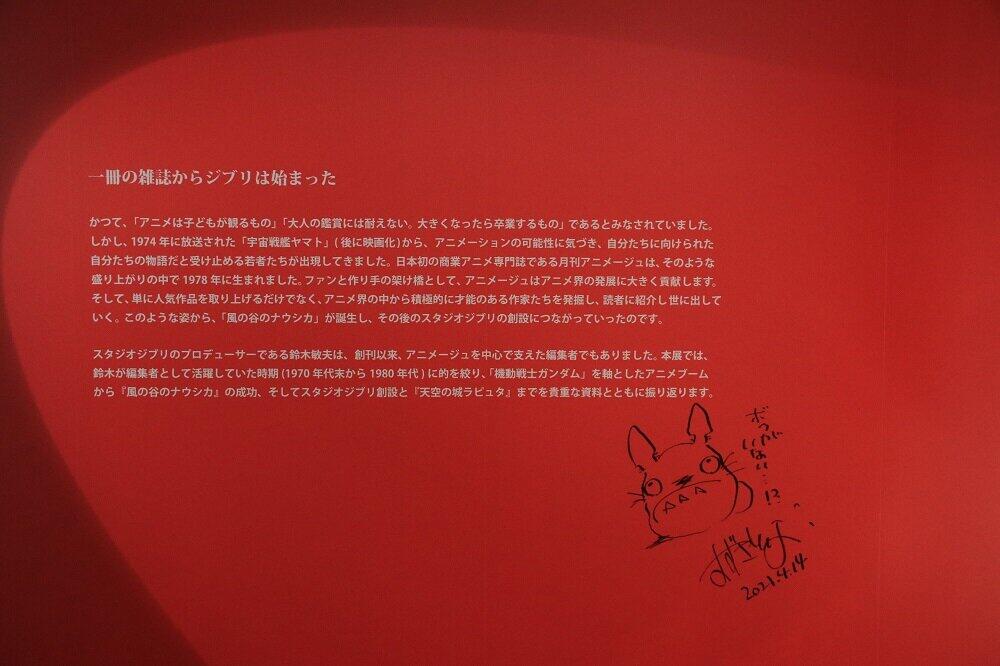 一冊の雑誌からジブリは始まった
かつて、「アニメは子どもが観るもの」「大人の鑑賞には耐えない。大きくなったら卒業するもの」であるとみなされていました。
しかし、1974 年に放送された「宇宙戦艦ヤマト」( 後に映画化 ) から、アニメーションの可能性に気づき、自分たちに向けられた
自分たちの物語だと受け止める若者たちが出現してきました。日本初の商業アニメ専門誌である月刊アニメージュは、そのような
盛り上がりの中で 1978 年に生まれました。ファンと作り手の架け橋として、アニメージュはアニメ界の発展に大きく貢献します。
そして、単に人気作品を取り上げるだけでなく、アニメ界の中から積極的に才能のある作家たちを発掘し、読者に紹介し世に出して
いく。このような姿から、「風の谷のナウシカ」が誕生し、その後のスタジオジブリの創設につながっていったのです。
スタジオジブリのプロデューサーである鈴木敏夫は、創刊以来、アニメージュを中心で支えた編集者でもありました。本展では、
鈴木が編集者として活躍していた時期 (1970 年代末から 1980 年代 ) に的を絞り、「機動戦士ガンダム」を軸としたアニメブーム
から『風の谷のナウシカ』の成功、そしてスタジオジブリ創設と『天空の城ラピュタ』までを貴重な資料とともに振り返ります。
2021.4.14